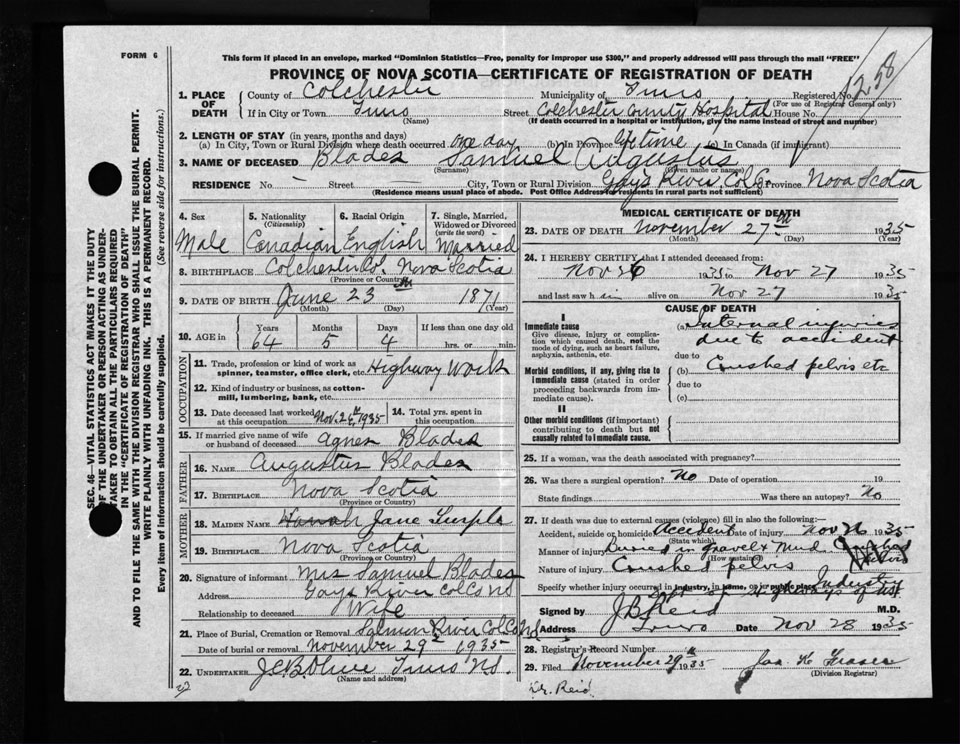 FORM 6
1258
This form if placed in an envelope, marked "Dominion Statistics—Free, penalty for improper use $300," and properly addressed will pass through the mail "FREE"
PROVINCE OF NOVA SCOTIA—CERTIFICATE OF REGISTRATION OF DEATH
1. PLACE OF DEATH
County of Colchester Municipality of Truro Registered No.
(For use of Registrar General only)
If in City or Town Truro Street Colchester County Hospital House No.
(Name) (If death occurred in a hospital or institution, give the name instead of street and number)
2. LENGTH OF STAY (in years, months and days)
(a) In City, Town or Rural Division where death occurred one day (b) In Province Lifetime (c) In Canada (if immigrant)
3. NAME OF DECEASED Blades Samuel Augustus
(Surname) (Given name or names)
RESIDENCE No. – Street City, Town or Rural Division Gays River Col Co. Province Nova Scotia
(Residence means usual place of abode. Post Office Address for residents in rural parts not sufficient)
4. Sex
Male
5. Nationality
(Citizenship)
Canadian
6. Racial Origin
English
7. Single, Married, Widowed or Divorced
(write the word)
Married
8. BIRTHPLACE Colchester Co. Nova Scotia
(Province or Country)
9. DATE OF BIRTH June 23 1871
(Month) (Day) (Year)
10. AGE in Years Months Days If less than one day old
64 5 4 hrs. or min.
OCCUPATION
11. Trade, profession or kind of work as spinner, teamster, office clerk, etc. Highway Work
12. Kind of industry or business, as cotton-mill, lumbering, bank, etc.
13. Date deceased last worked at this occupation Nov. 26th, 1935
14. Total yrs. spent in this occupation
15. If married give name of wife or husband of deceased Agnes Blades
FATHER
16. NAME Augustus Blades
17. BIRTHPLACE Nova Scotia
(Province or Country)
MOTHER
18. MAIDEN NAME Hannah Jane
19. BIRTHPLACE Nova Scotia
(Province or Country)
20. Signature of informant Mrs Samuel Blades
Address Gays River Col Co NS
Relationship to deceased Wife
21. Place of Burial, Cremation or Removal Salmon River Col Co NS
Date of burial or removal November 29th 1935
22. UNDERTAKER Truro NS.
(Name and address)
MEDICAL CERTIFICATE OF DEATH
23. DATE OF DEATH November 27th 1935
(Month) (Day) (Year)
24. I HEREBY CERTIFY that I attended deceased from:
Nov 26 1935 to Nov 27 1935
and last saw him alive on Nov 27 1935
CAUSE OF DEATH
I
Immediate cause
Give disease, injury or complication which caused death, not the mode of dying, such as heart failure, asphyxia, asthenia, etc.
(a) Internal injuries
due to accident
due to
Morbid conditions, if any, giving rise to immediate cause (stated in order proceeding backwards from immediate cause).
(b) Crushed pelvis etc
due to
(c)
II
Other morbid conditions (if important) contributing to death but not causally related to immediate cause.
25. If a woman, was the death associated with pregnancy?
26. Was there a surgical operation? No Date of operation 19
State findings Was there an autopsy? No
27. If death was due to external causes (violence) fill in also the following:—
Accident, suicide or homicide Accident Date of injury Nov 26 1935
(State which)
Manner of injury Buried in gravel & Mud.
(How sustained)
Nature of injury Crushed pelvis
Specify whether injury occurred in industry, in home, or in public place Industry
Signed by J B Reid M.D.
Address Truro Date Nov 28 1935
28. Registrar's Record Number
29. Filed November 29th 1935 Jas. K. Fraser
(Division Registrar)
Dr. Reid
SEC. 46—VITAL STATISTICS ACT MAKES IT THE DUTY
OF THE UNDERTAKER OR PERSON ACTING AS UNDER-
TAKER TO OBTAIN ALL THE PARTICULARS REQUIRED
IN THE "CERTIFICATE OF REGISTRATION OF DEATH"
AND TO FILE THE SAME WITH THE DIVISION REGISTRAR WHO SHALL ISSUE THE BURIAL PERMIT.
WRITE PLAINLY WITH UNFADING INK. THIS IS A PERMANENT RECORD.
Every item of information should be carefully supplied. (See reverse side for instructions.)